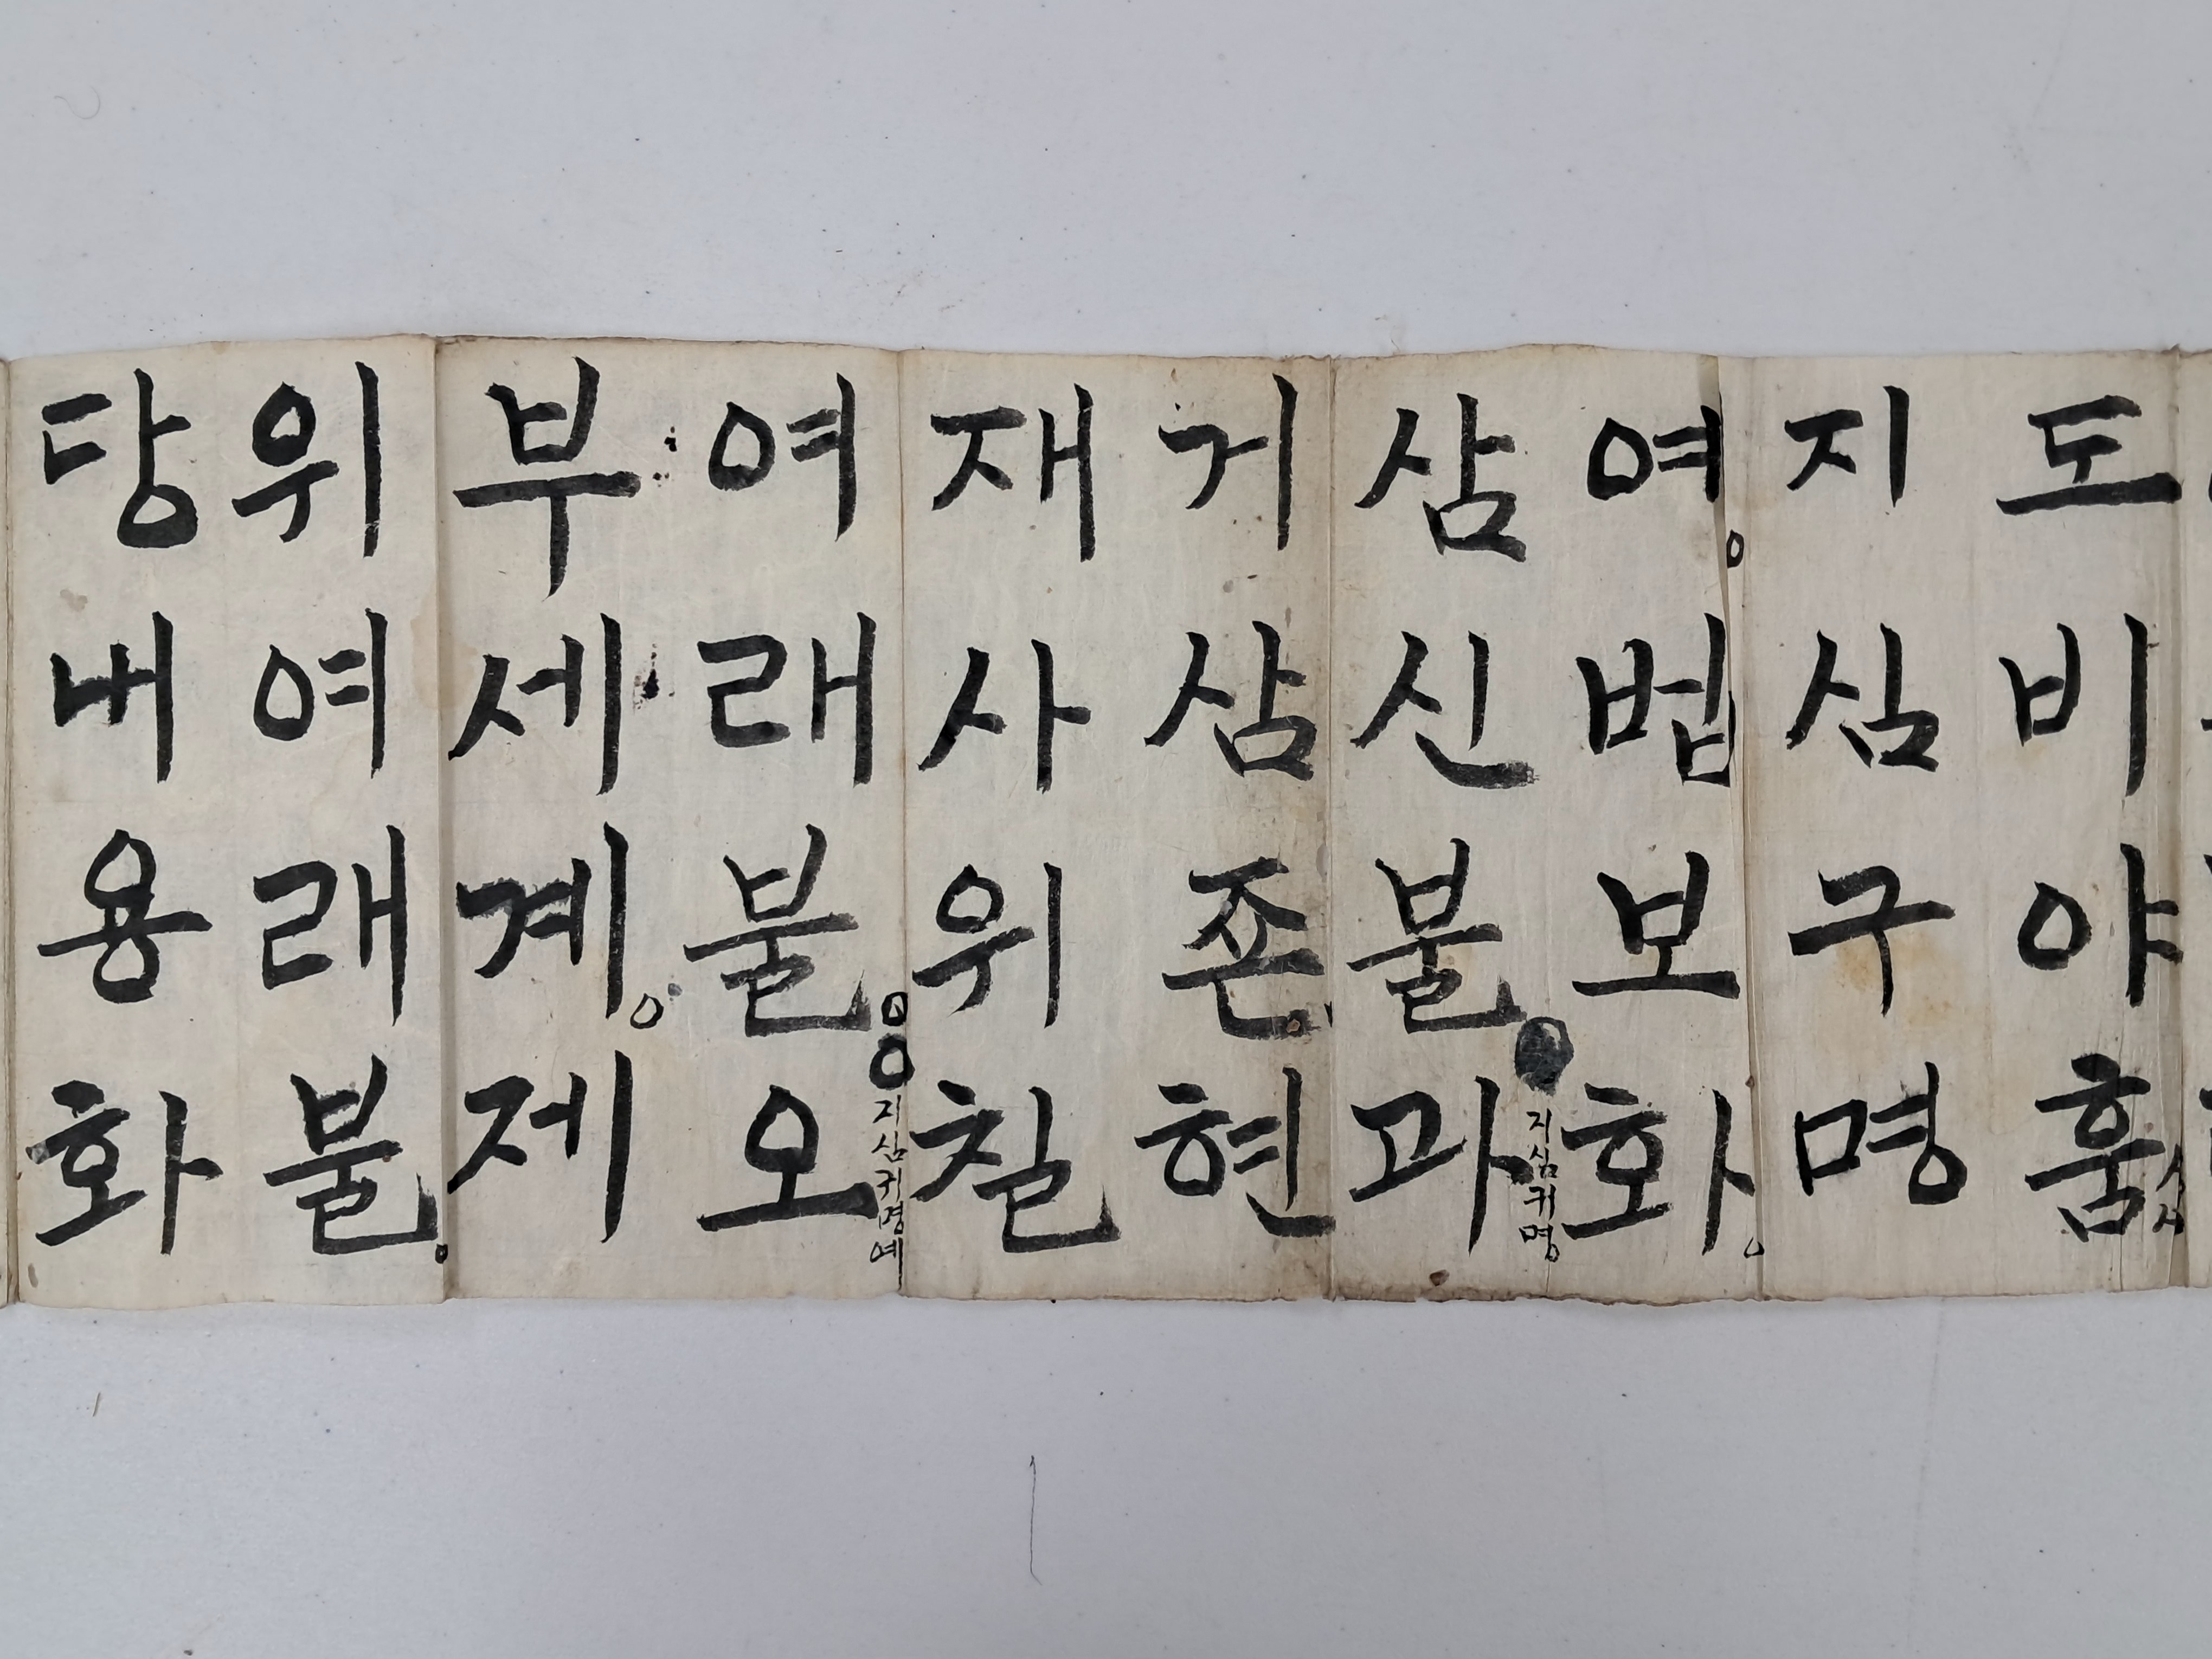 도비야훔
지심구명
영법보화
삼신불과
지심귀명
거삼존현
재사위칠
여래불오
지심귀명예
부세계제
위여래불
당내용화